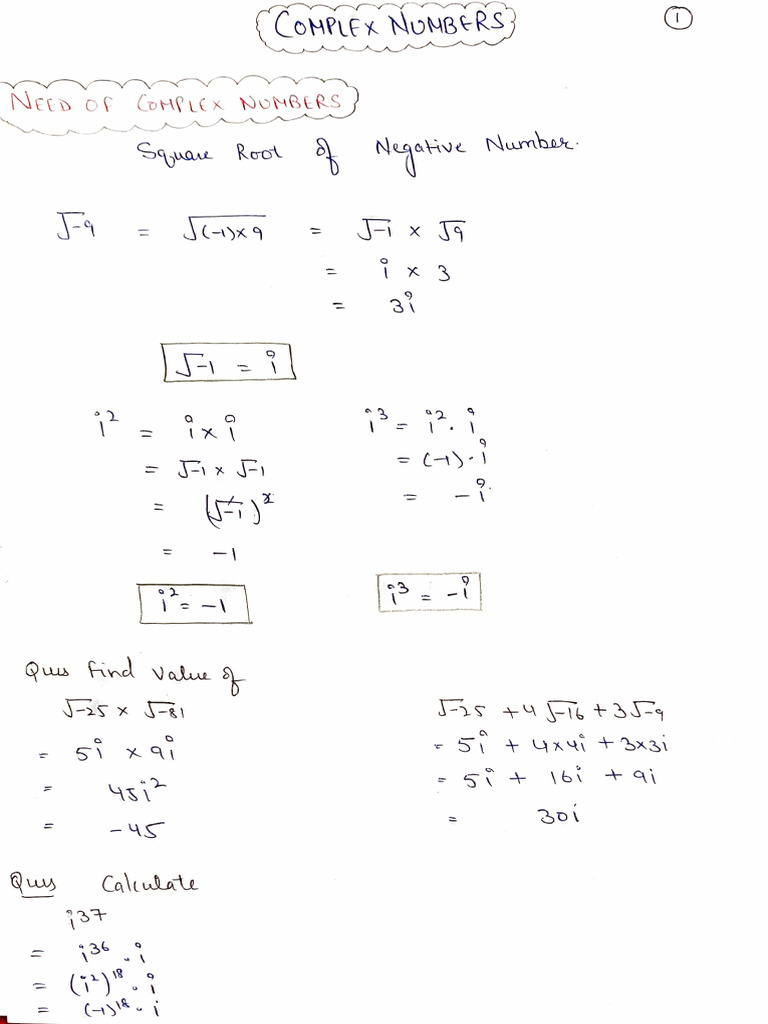 COMPLEX NUMBERS
1
NEED OF COMPLEX NUMBERS
Square Root of Negative Number.
√-9 = √(-1)×9 = √-1 × √9
= i × 3
= 3i
√-1 = i
i² = i × i
= √-1 × √-1
= (√-1)²
= -1
i² = -1
i³ = i² · i
= (-1) · i
= -i
i³ = -i
Ques Find Value of
√-25 × √-81
= 5i × 9i
= 45i²
= -45
√-25 + 4√-16 + 3√-9
= 5i + 4×4i + 3×3i
= 5i + 16i + 9i
= 30i
Ques Calculate
i³⁷
= i³⁶ · i
= (i²)¹⁸ · i
= (-1)¹⁸ · i